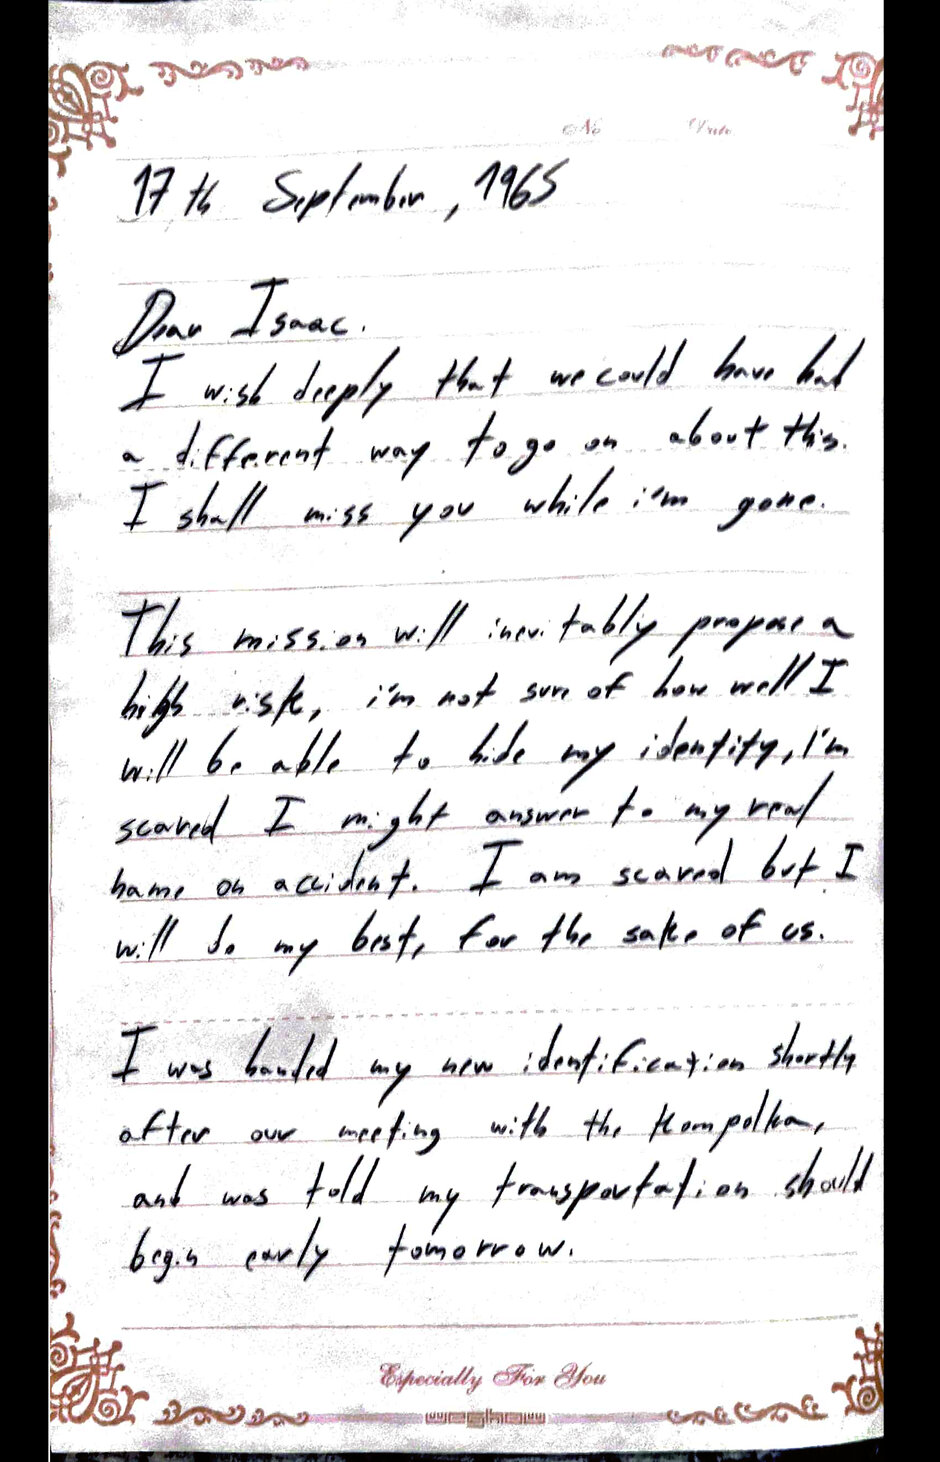 No Date
17th September, 1965
Dear Isaac.
I wish deeply that we could have had
a different way to go on about this.
I shall miss you while i'm gone.
This mission will inevitably propose a
high risk, i'm not sure of how well I
will be able to hide my identity, I'm
scared I might answer to my real
name on accident. I am scared but I
will do my best, for the sake of us.
I was handed my new identification shortly
after our meeting with the Kompolka,
and was told my transportation should
begin early tomorrow.
Especially For You